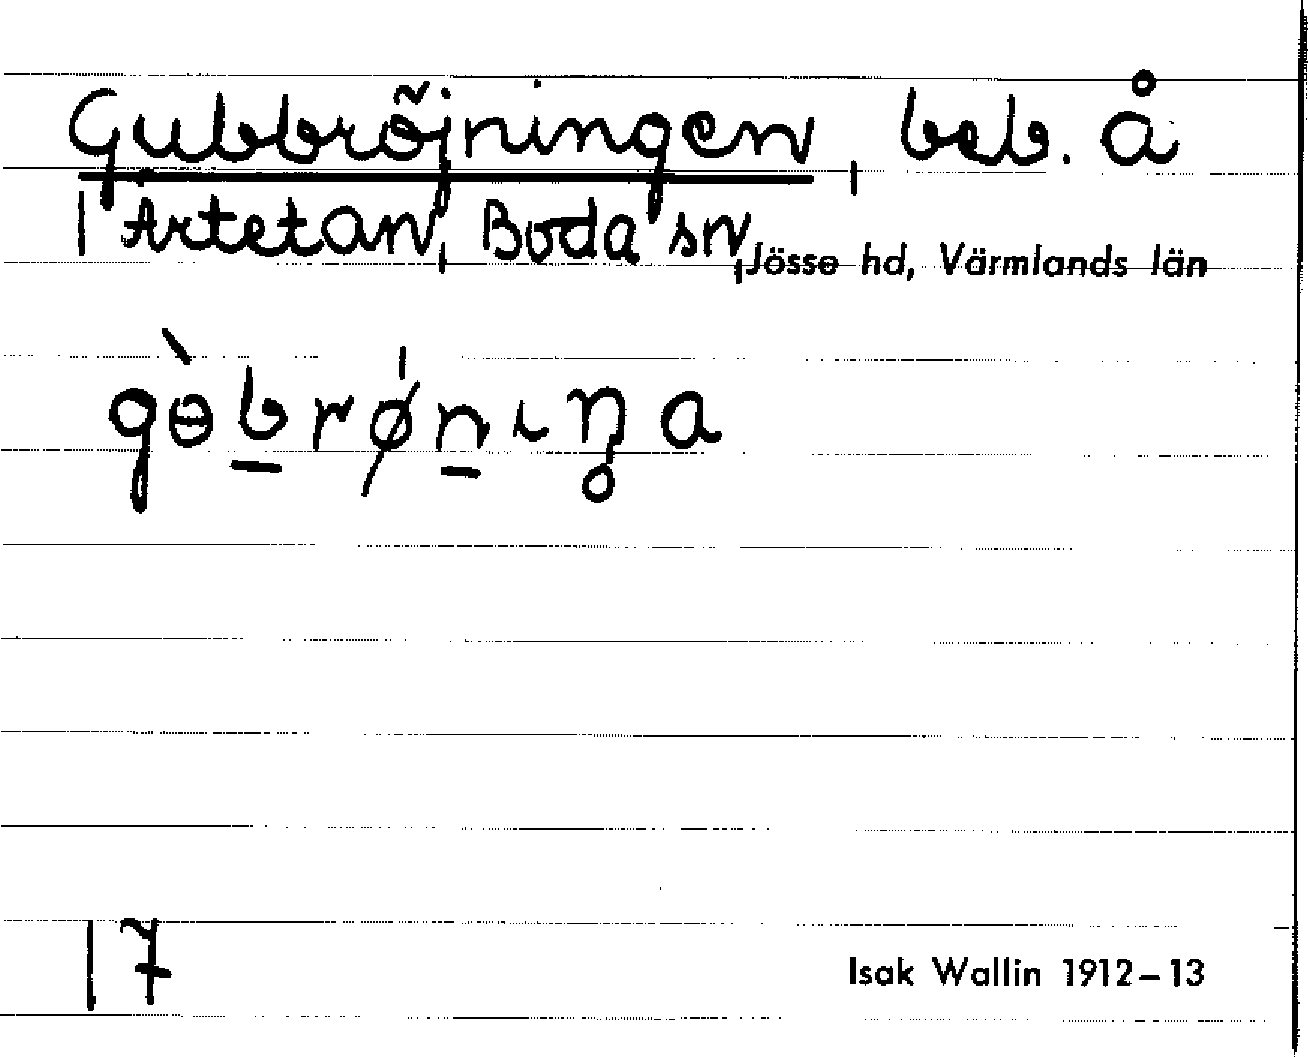 Gubbröjningen, beb. å
1 Ärtetan, Boda sn, Jösse hd, Värmlands län
gɵ̀b̲rø̍n̲ıŋa
17
Isak Wallin 1912–13